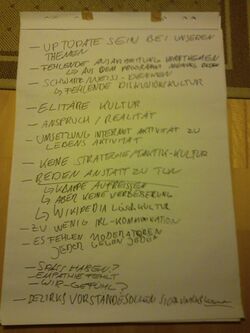 - UP TO DATE SEIN BEI UNSEREN
THEMEN
- FEHLENDE AUSARBEITUNG VON THEMEN
↳ AUS DEM PROGRAMM
- SCHWARZ/WEISS-DENKEN
↳ FEHLENDE DISKUSSIONSKULTUR
- ELITÄRE KULTUR
- ANSPRUCH / REALITÄT
- UMSETZUNG INTERNET AKTIVITÄT ZU
LEBENS AKTIVITÄT
- KEINE STRATEGIE/TAKTIK-KULTUR
- REDEN ANSTATT ZU TUN
↳ KLAPPE AUFREISSEN
↳ ABER KEINE VERBESSERUNG
↳ WIKIPEDIA LÖSCHKULTUR
- ZU WENIG IRL-KOMMUNIKATION
- ES FEHLEN MODERATOREN
JEDER GEGEN JEDEN
- SPASS HABEN?
- EMPATHIE FEHLT
- WIR-GEFÜHL?
- BEZIRKS VORSTAND SOLLEN